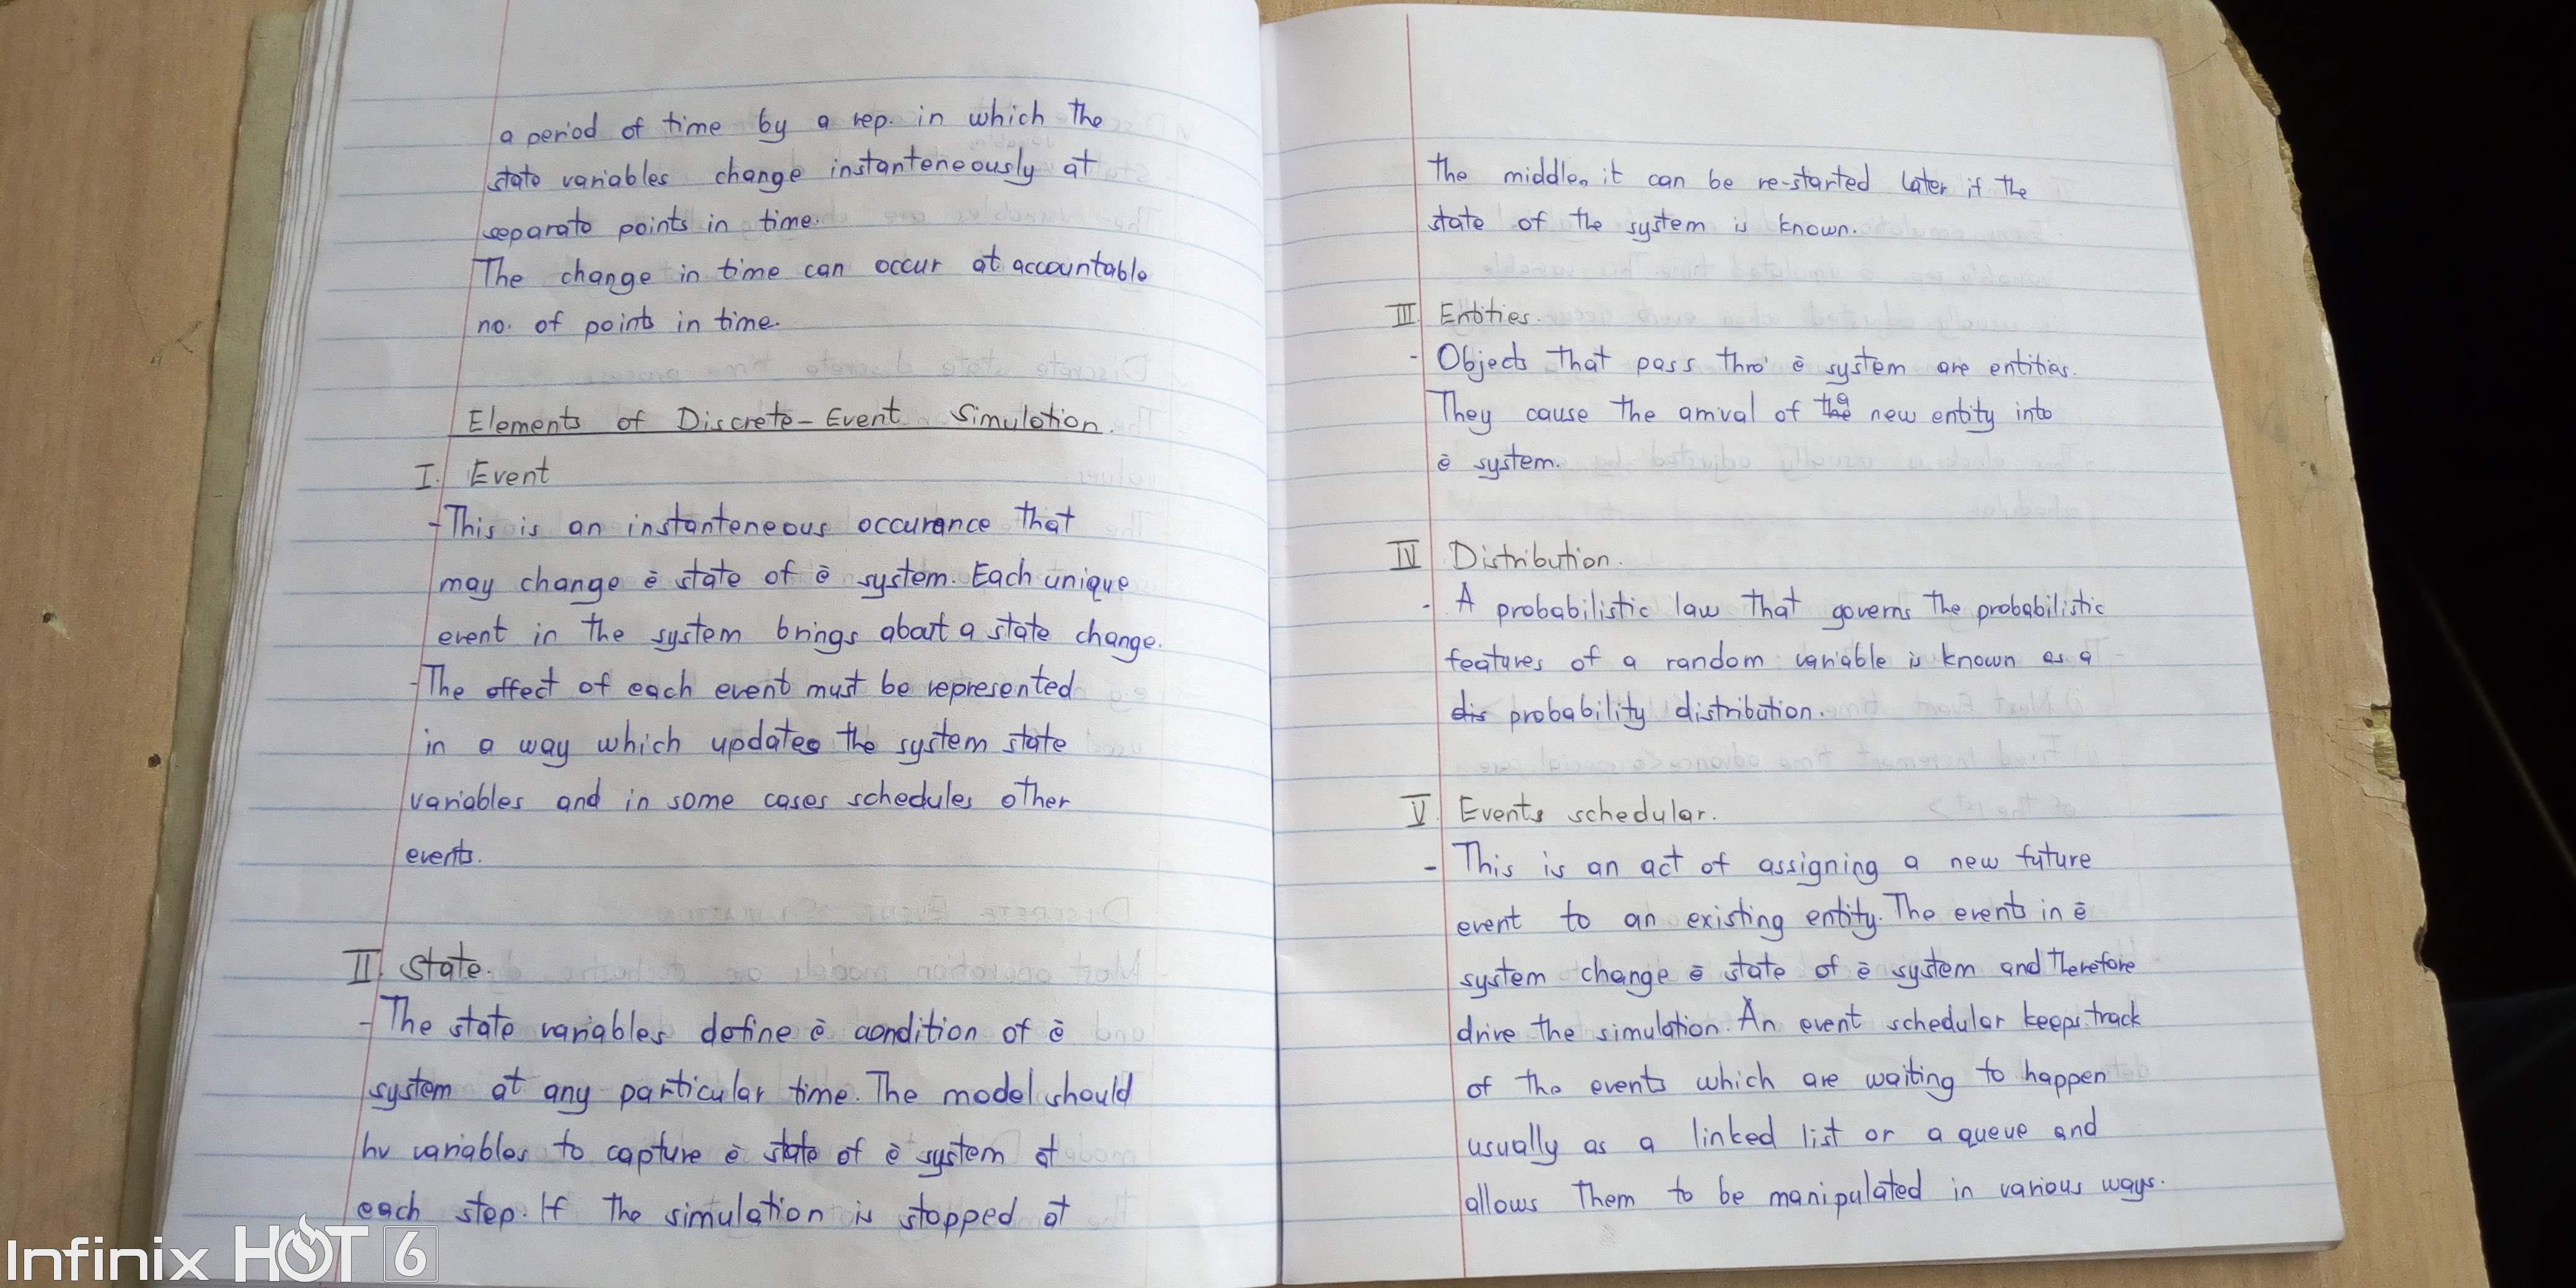 a period of time by a rep. in which the
state variables change instanteneously at
separate points in time.
The change in time can occur at accountable
no. of points in time.
Elements of Discrete-Event Simulation.
I. Event
-This is an instanteneous occurance that
may change ē state of ē system. Each unique
event in the system brings about a state change.
-The effect of each event must be represented
in a way which updates the system state
variables and in some cases schedules other
events.
II. State.
-The state variables define ē condition of ē
system at any particular time. The model should
hv variables to capture ē state of ē system at
each step. If the simulation is stopped at
the middle, it can be re-started later if the
state of the system is known.
III Entities.
- Objects that pass thro' ē system are entities.
They cause the arrival of the a new entity into
ē system.
IV Distribution.
- A probabilistic law that governs the probabilistic
features of a random variable is known as a
dis probability distribution.
V. Events schedular.
- This is an act of assigning a new future
event to an existing entity. The events in ē
system change ē state of ē system and therefore
drive the simulation. An event schedular keeps track
of the events which are waiting to happen
usually as a linked list or a queue and
allows them to be manipulated in various ways.
Infinix HOT 6